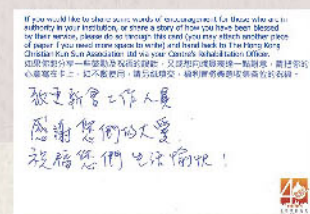 If you would like to share some words of encouragement for those who are in
authority in your institution, or share a story of how you have been blessed
by their service, please do so through this card (you may attach another piece
of paper if you need more space to write) and hand back to The Hong Kong
Christian Kun Sun Association Ltd via your Centre's Rehabilitation Officer.
致更新會工作人員
感謝您們的大愛
祝福您們生活愉快！